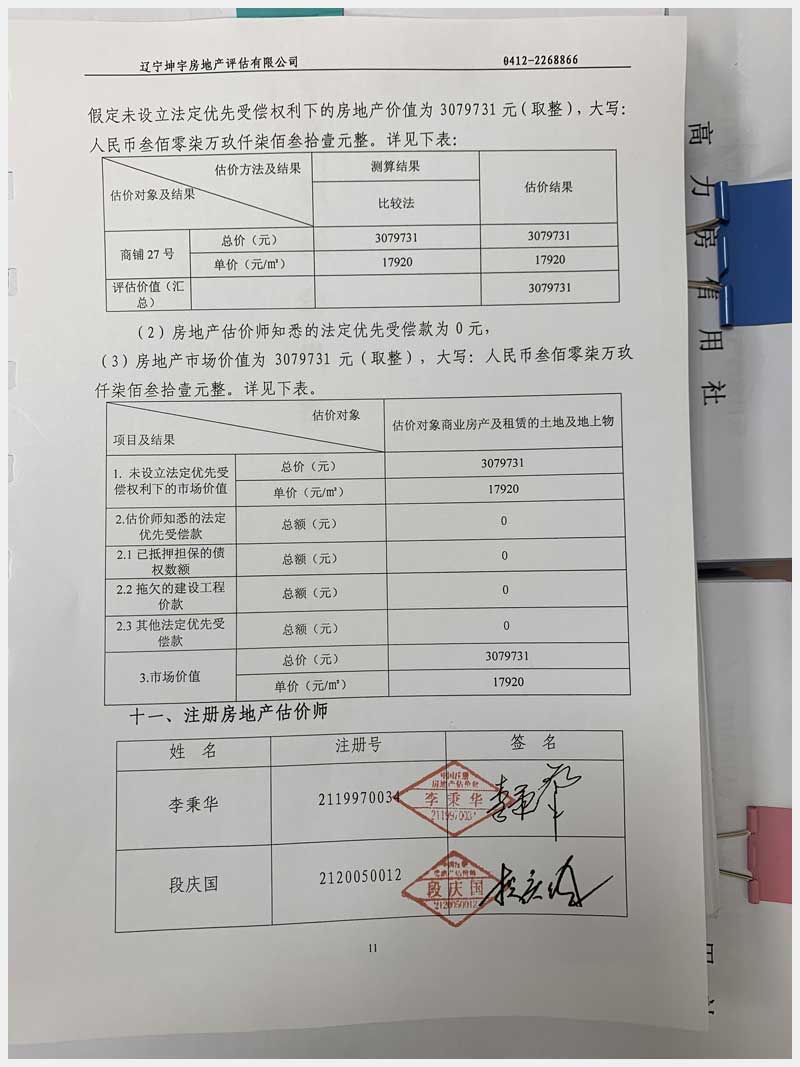 辽宁坤宇房地产评估有限公司 0412-2268866
假定未设立法定优先受偿权利下的房地产价值为 3079731 元（取整），大写：
人民币叁佰零柒万玖仟柒佰叁拾壹元整。详见下表：
估价方法及结果 测算结果 估价结果
估价对象及结果 比较法
商铺 27 号 总价（元） 3079731 3079731
单价（元/㎡） 17920 17920
评估价值（汇
总） 3079731
（2）房地产估价师知悉的法定优先受偿款为 0 元，
（3）房地产市场价值为 3079731 元（取整），大写：人民币叁佰零柒万玖
仟柒佰叁拾壹元整。详见下表。
估价对象 估价对象商业房产及租赁的土地及地上物
项目及结果
1. 未设立法定优先受
偿权利下的市场价值
总价（元） 3079731
单价（元/㎡） 17920
2.估价师知悉的法定
优先受偿款
总额（元） 0
2.1 已抵押担保的债
权数额
总额（元） 0
2.2 拖欠的建设工程
价款
总额（元） 0
2.3 其他法定优先受
偿款
总额（元） 0
3.市场价值 总价（元） 3079731
单价（元/㎡） 17920
十一、注册房地产估价师
姓 名 注册号 签 名
李秉华 2119970034
中国注册
房地产估价师
李秉华
李秉华
段庆国 2120050012
房地产估价师
段庆国
2120050012
段庆国
11
高力房信用社